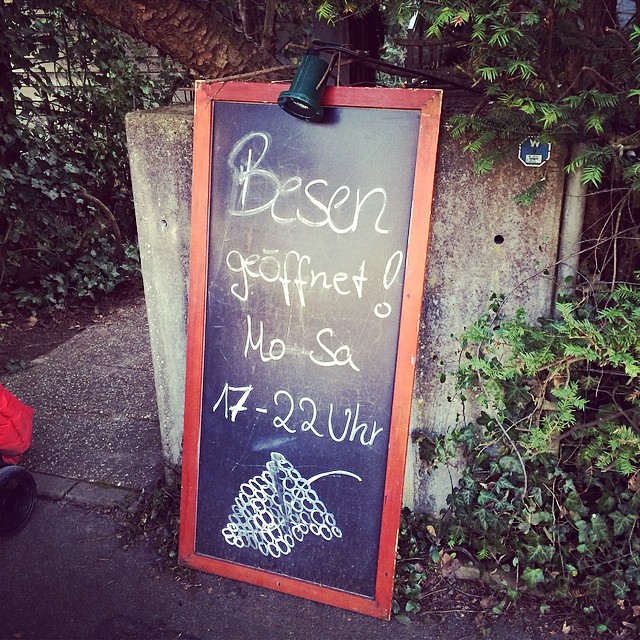 Besen
geöffnet!
Mo Sa
17-22 Uhr
W